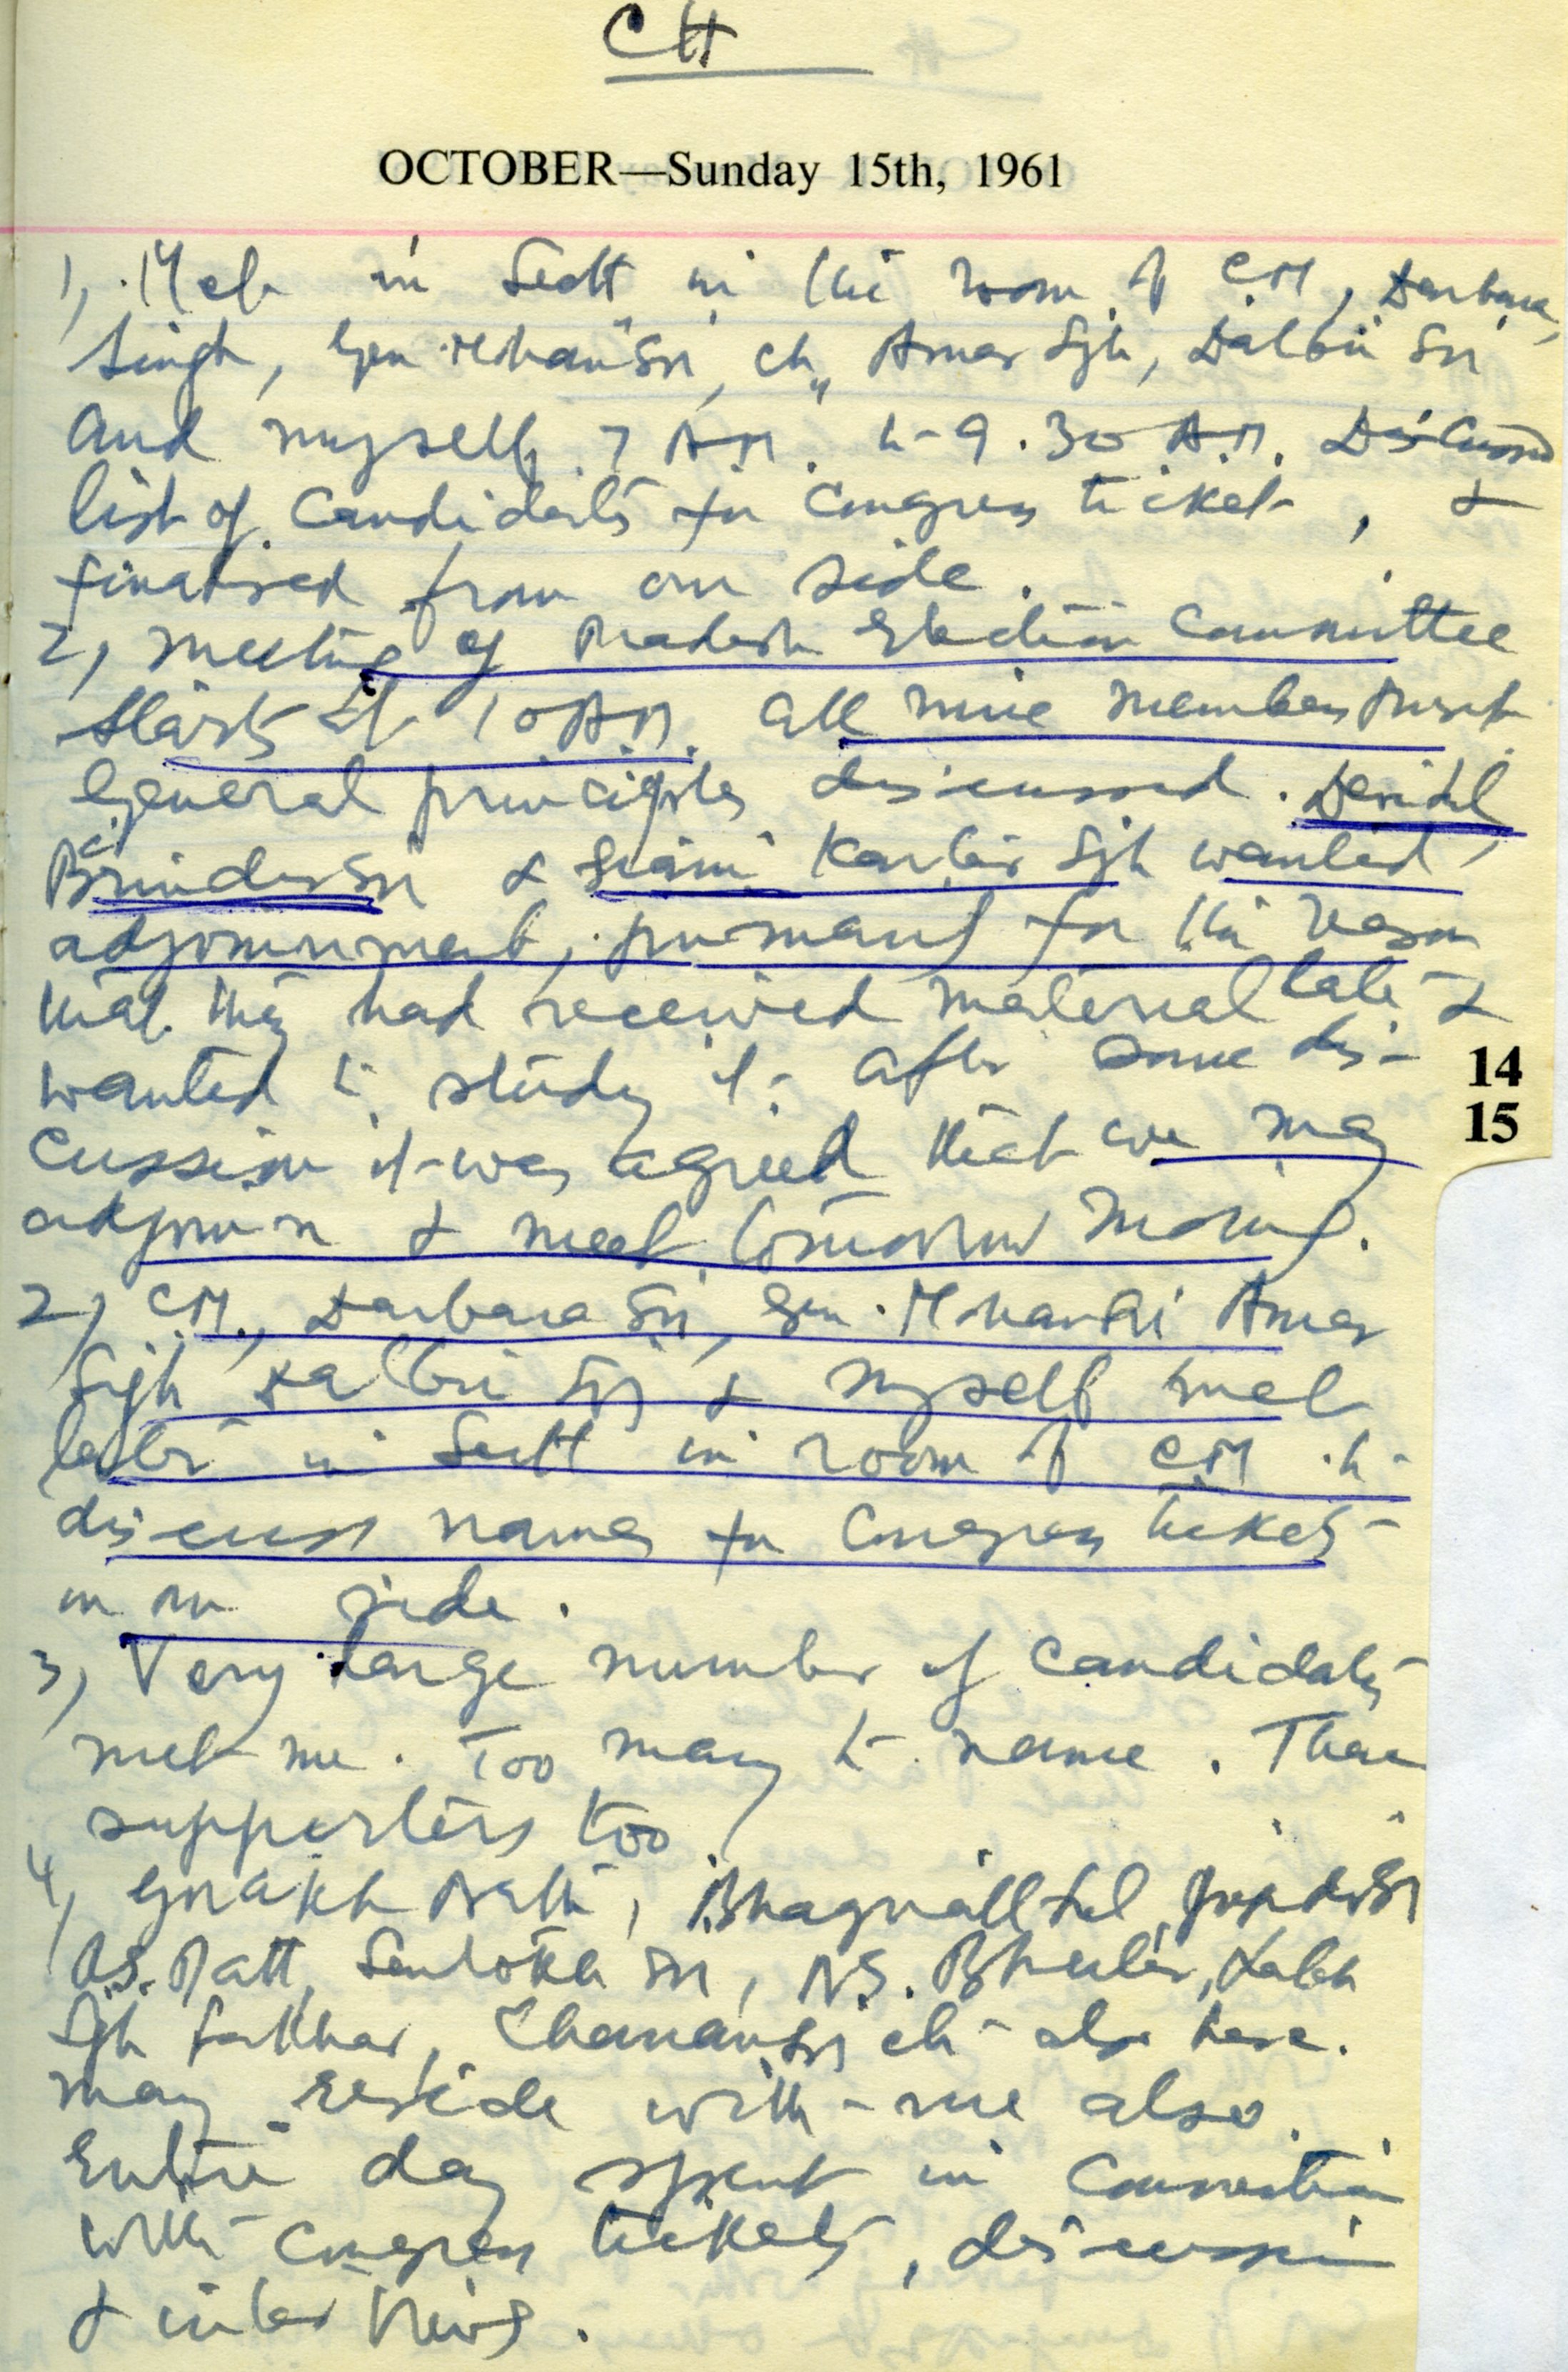 CH
OCTOBER—Sunday 15th, 1961
1, Met in Sectt in the room of CM, Darbara
Singh, Gen Mohan Sn, Ch, Amar Sgh, Dalbir Sn
and myself 7 AM. to 9.30 AM. Discussed
list of candidates for Congress ticket, &
finalised from our side.
2, Meeting of Pradesh Election Committee
starts at 10 AM. all nine members present
General principles discussed.
Brinder Sn & Giani Kartar Sgh wanted
adjournment, for the reason
that they had received material late &
wanted to study it. After some dis-
cussion it was agreed that we may
adjourn & meet tomorrow morning.
2, CM, Darbara Sn, Gen. Mohan Sn Amar
Sgh Dalbir Sn & myself met
later in Sectt in room of CM to
discuss names for Congress tickets
in our side.
3, Very large number of candidates
met me. Too many to name. Their
supporters too.
4, Gorakh Nath, Bhagwatt Lal,
Santokh Sn, Labh
Sgh Chanan Sn etc also here.
Many reside with me also.
Entire day spent in connection
with Congress tickets, discussion
& interviews.
14
15